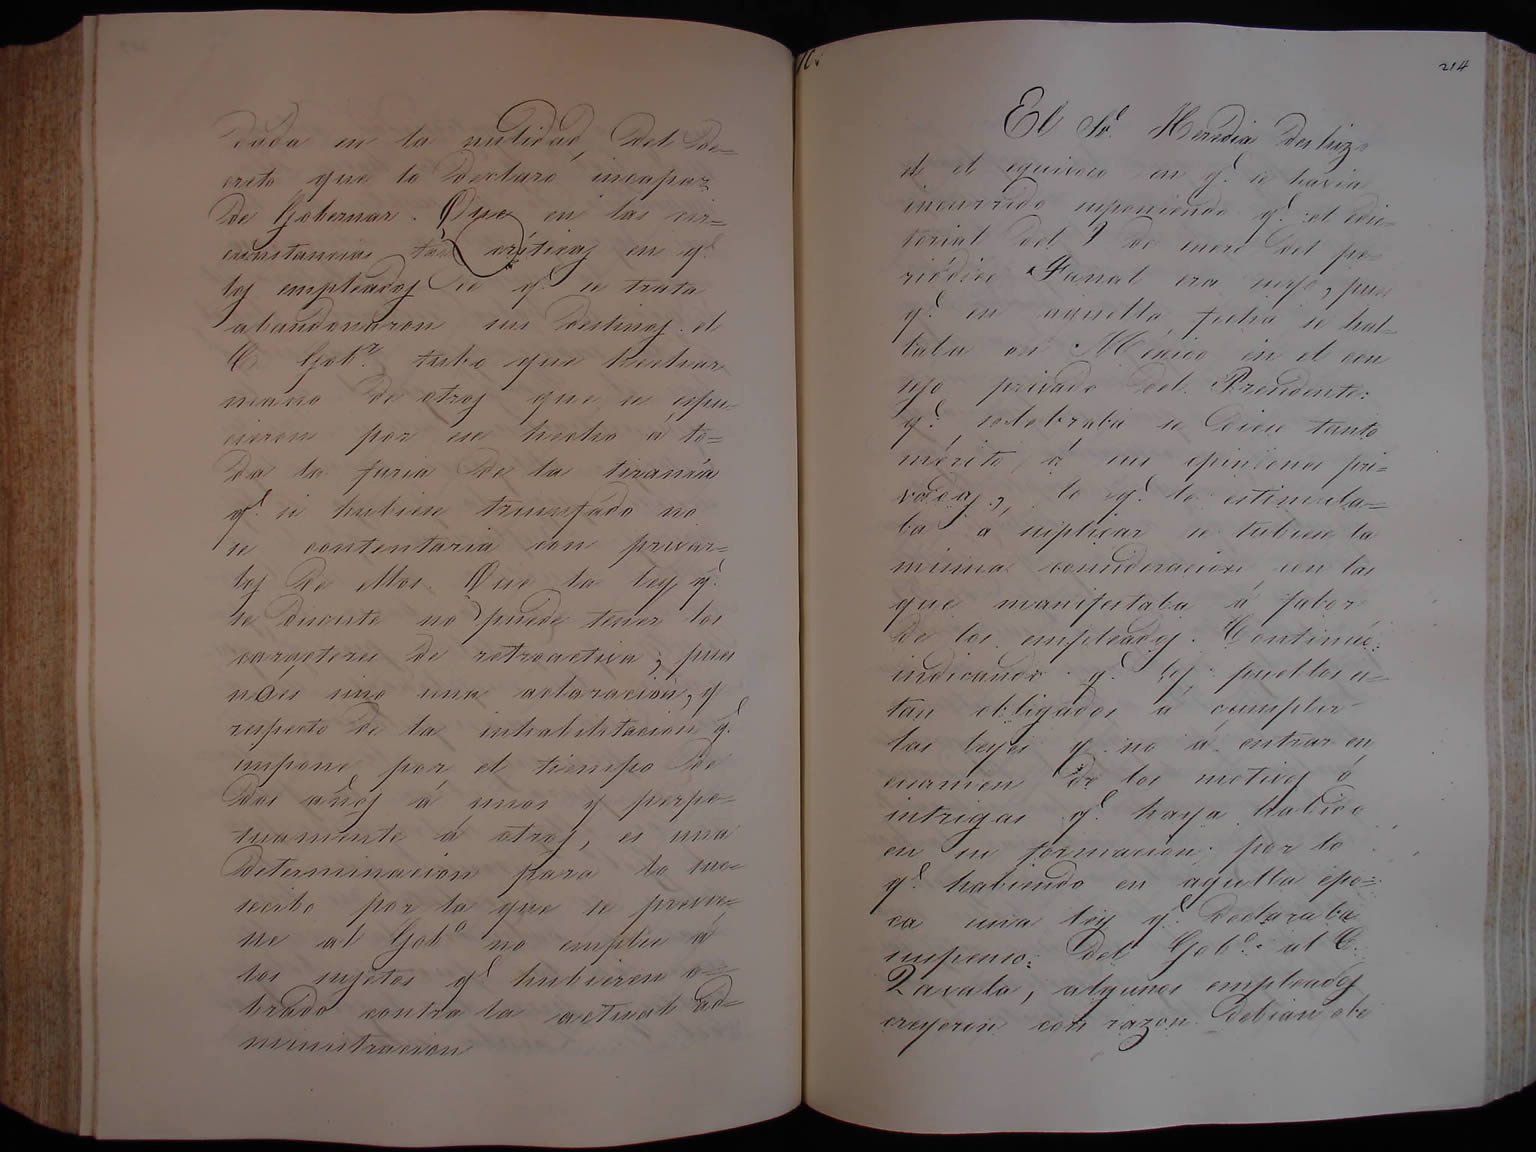 dada en la nulidad, del De=
creto que lo declaró incapaz
de Gobernar. Que en las cir=
cunstancias tan críticas en q.e
los empleados de q.e se trata
abandonaron sus destinos el
C. Gob.r tubo que hechar
mano de otros que se espu-
cieron por ese hecho á to=
da la furia de la tiranía
q.e si hubiese triunfado no
se contentaria con privar=
los de ellos. Que la ley q.e
se discute no puede tener los
caracteres de retroactiva; pues
no es sino una aclaracion, y
respecto de la inhabilitacion q.e
impone por el tiempo de
dos años á unos y perpe-
tuamente á otros, es una
determinacion para lo su=
cecibo por la que se previe=
ne al Gob.o no emplee á
los sujetos q.e hubieren o=
brado contra la actual ad=
ministracion
214
El Sr. Heredia deshizo
el equivoco en q.e se havia
incurrido suponiendo q.e el edi=
torial del 7 de enero del pe=
riódico Fanal era suyo, pues
q.e en aquella fecha se hal=
laba en México en el con
sejo privado del Presidente:
q.e celebraba se diese tanto
mérito á sus opiniones pri=
vadas, lo q.e lo estimula=
ba á suplicar se tubiese la
misma consideracion con las
que manifestaba á fabor
de los empleados. Continuó:
indicando q.e los pueblos es=
tan obligados á cumplir
las leyes y no á entrar en
examen de los motivos ó
intrigas q.e haya habido
en su formacion; por lo
q.e habiendo en aquella épo=
ca una ley q.e declaraba
suspenso del Gob.o al C.
Zavala, algunos empleados
creyeron con razon debian obe